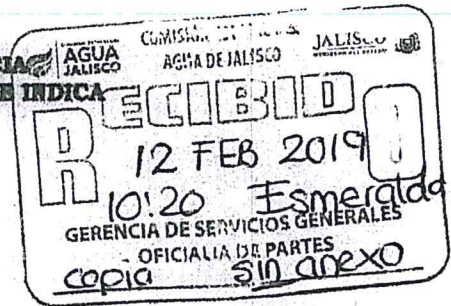 AGUA
JALISCO
AGUA DE JALISCO
E INDICA
RECIBIDO
12 FEB 2019
10:20 Esmeralda
GERENCIA DE SERVICIOS GENERALES
OFICIALIA DE PARTES
copia sin anexo